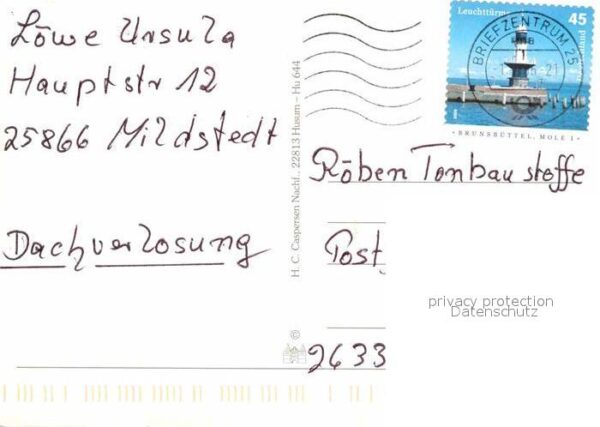 Löwe Ursula
Hauptstr 12
25866 Mildstedt
Dachverlosung
H. C. Caspersen Nachf., 22813 Husum – Hu 644
©
Leuchttürme
45
BRIEFZENTRUM 25
BRUNSBÜTTEL, MOLE 1
Röben Tonbaustoffe
Post
2633
privacy protection
Datenschutz